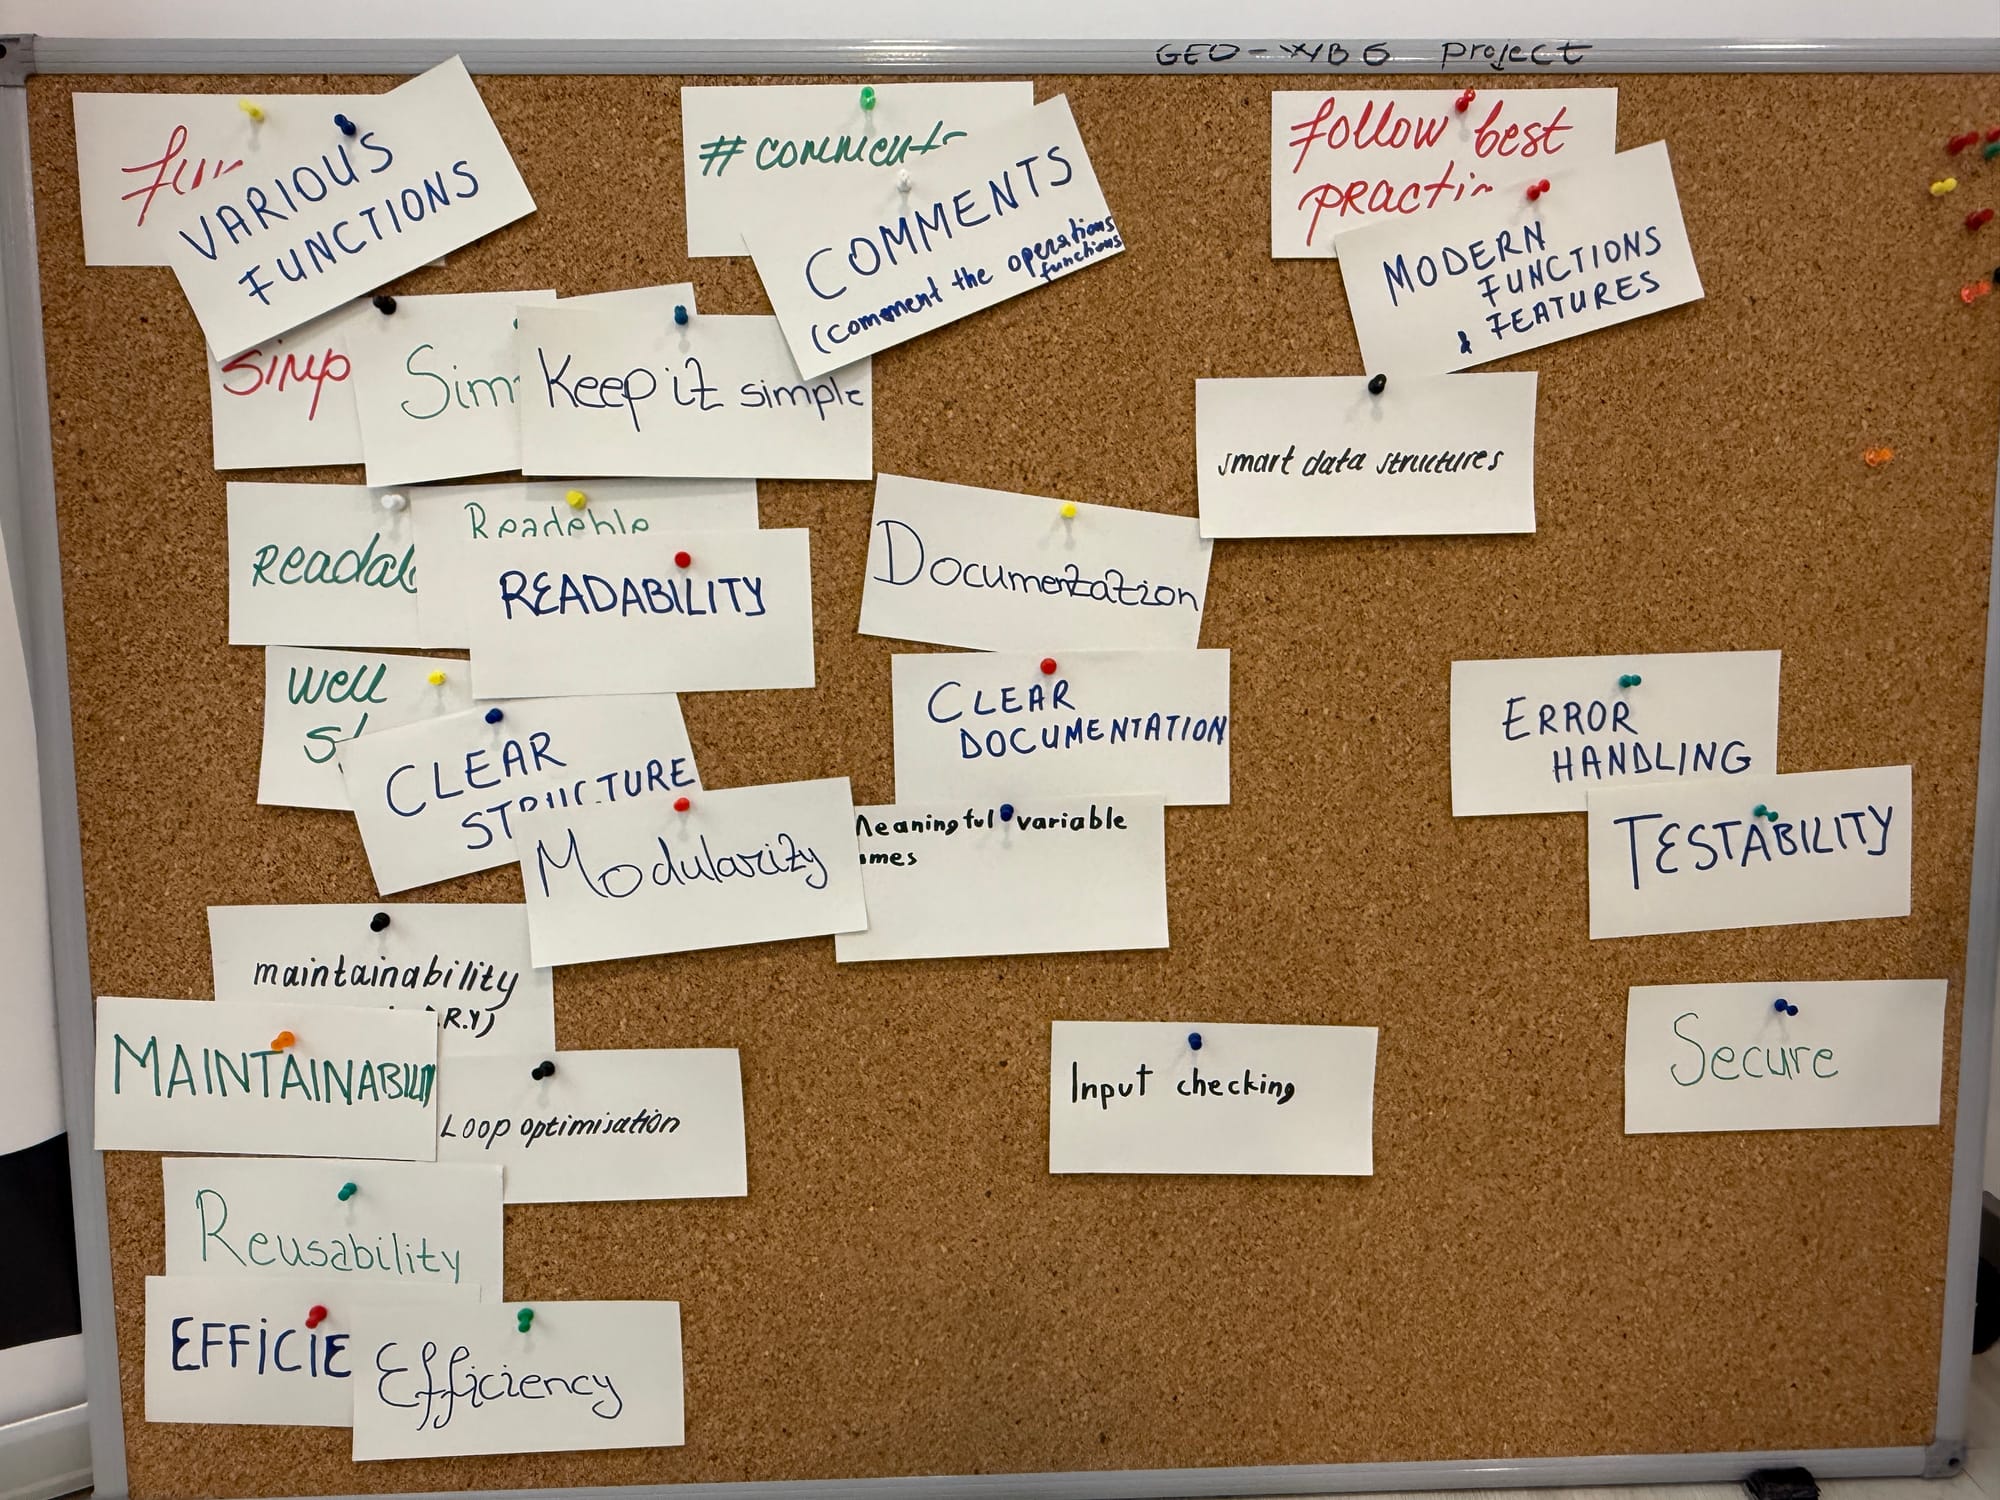 GEO-WB6 project
VARIOUS
FUNCTIONS
# comments
COMMENTS
(comment the operations
functions
follow best
MODERN
FUNCTIONS
& FEATURES
Keep it simple
smart data structures
Readable
READABILITY
Documentation
Well
CLEAR
STRUCTURE
CLEAR
DOCUMENTATION
ERROR
HANDLING
TESTABILITY
Modularity
Meaningful variable
maintainability
R.Y)
MAINTAINABILITY
Loop optimisation
Input checking
Secure
Reusability
EFFICIE
Efficiency